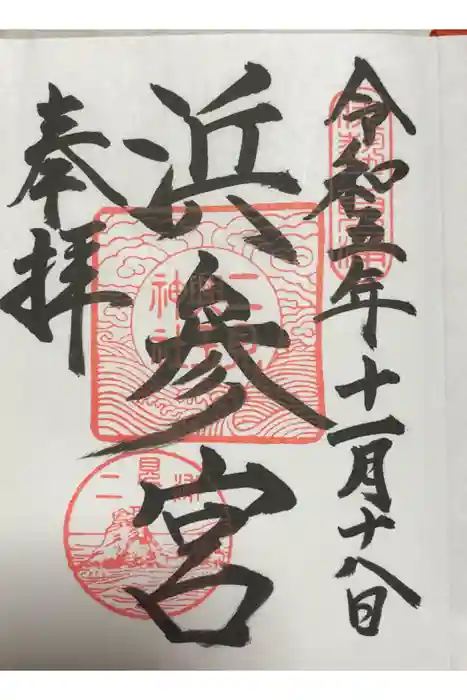 令和五年十一月十八日
浜参宮
奉拝
二見
興玉
神社
二見浦